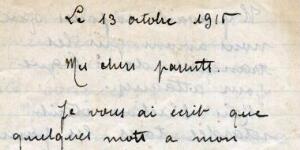 Le 13 octobre 1915
Mes chers parents.
Je vous ai ecrit que
quelques mots a mon